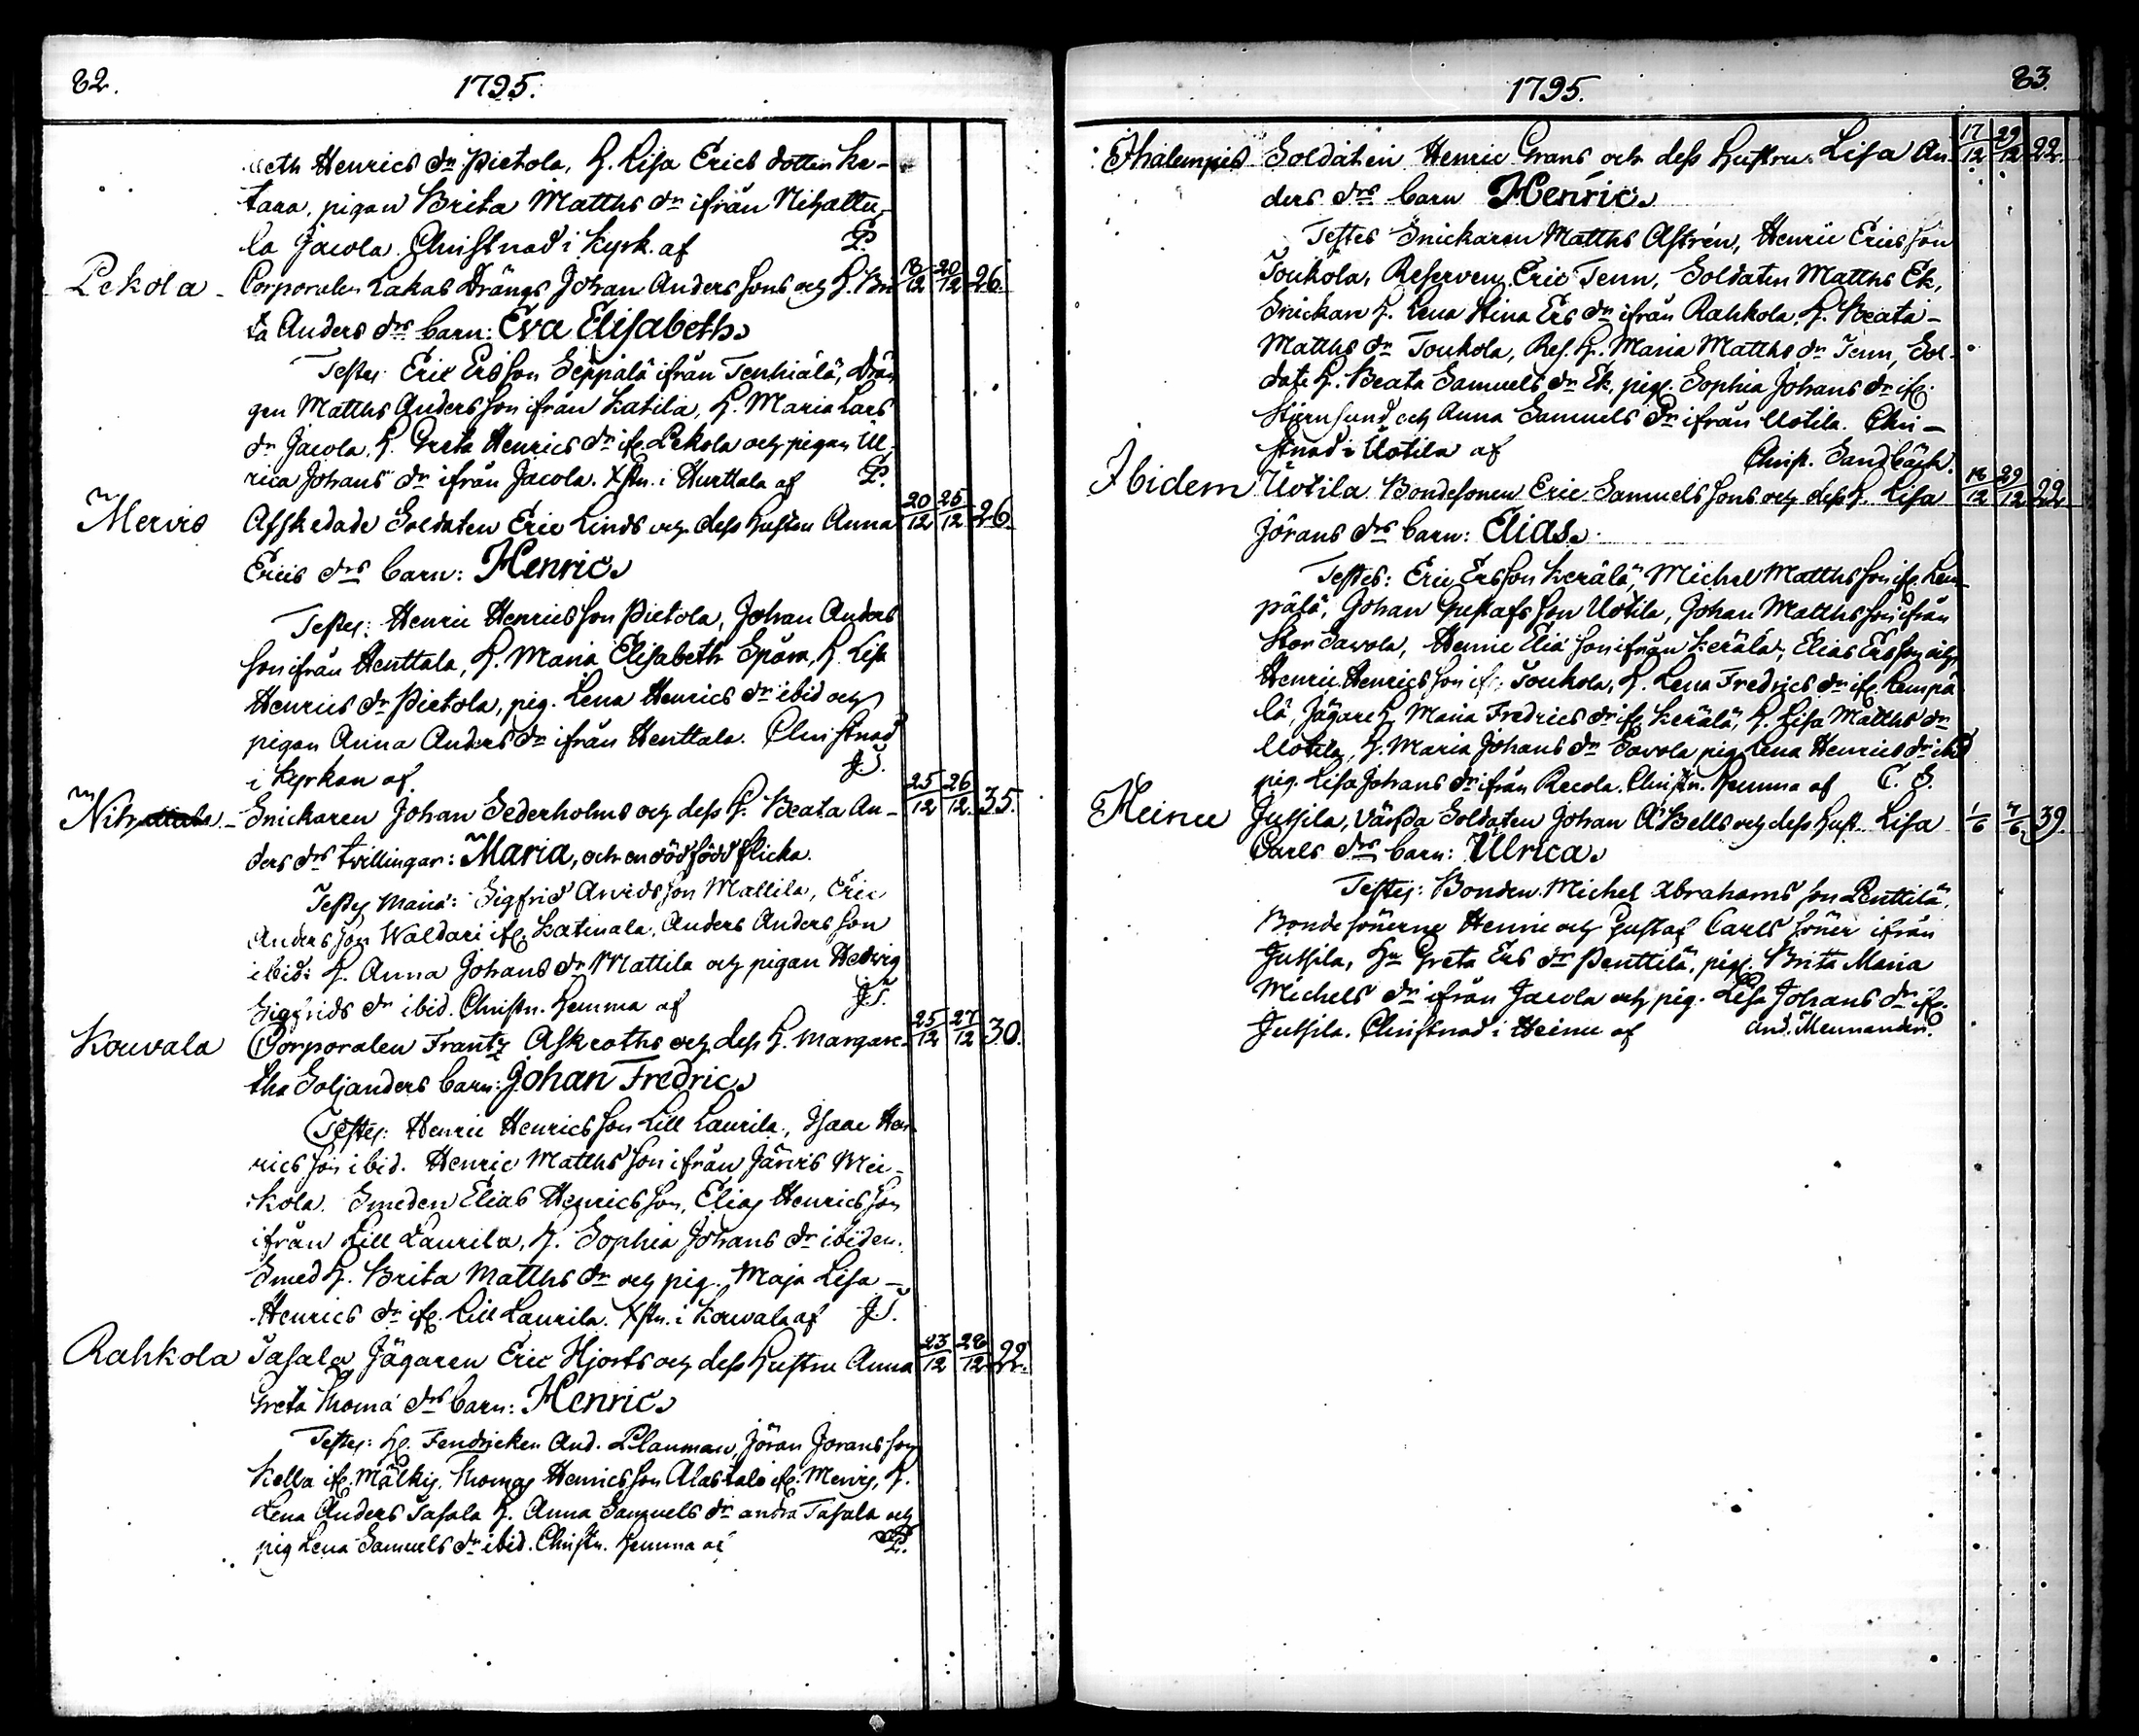 82.
1795.
beth Henrics dr Pietola, H. Lisa Erics dotter Ka-
tara, pigan Brita Matths dr ifrån Nihattu-
la Jacola. Christnad i Kyrk. af P.
Pekola - Corporalen Lakas Drängs Johan Anders sons och H. Bri- 18/12 20/12 26.
ta Anders drs barn: Eva Elisabeth.
Testes: Eric Ersson Seppälä ifrån Tenhiälä, drän
gen Matths Andersson ifrån Katila, H. Maria Lars
dr Jacola, H. Greta Henrics dr ifr. Pekola och pigan Ul-
rica Johans dr ifrån Jacola. Xstn. i Hurttala af P.
Mervis Afskedade Soldaten Eric Linds och dess hustru Anna 20/12 25/12 26.
Erics drs barn: Henric.
Testes: Henric Henricsson Pietola, Johan Anders
son ifrån Henttala, H. Maria Elisabeth Spåra, H. Lisa
Henrics dr Pietola, pig. Lena Henrics dr ibid och
pigan Anna Anders dr ifrån Henttala. Christnad
i Kyrkan af J.T.
Nihattula - Snickaren Johan Sederholms och dess H. Beata An- 25/12 26/12 35.
ders drs tvillingar: Maria, och en dödfödd flicka.
Testes Maria: Sigfrid Arvidsson Mattila, Eric
Andersson Waldari ifr. Katinala, Anders Andersson
ibid: H. Anna Johans dr Mattila och pigan Hedvig
Sigfrids dr ibid. Christn. hemma af J.T.
Kouvala Corporalen Frantz Askroths och dess H. Margare- 25/12 27/12 30.
tha Soljanders barn: Johan Fredric.
Testes: Henric Henricsson Lill Laurila, Isaac Hen-
ricsson ibid. Henric Matthsson ifrån Järvis Mei-
kola. Smeden Elias Henricsson, Elias Henricsson
ifrån Lill Laurila, H. Sophia Johans dr ibidem.
Smed H. Brita Matths dr och pig. Maja Lisa
Henrics dr ifr. Lill Laurila. Xstn. i Kouvala af J.T.
Rahkola Tasala Jägaren Eric Hjorts och dess hustru Anna 23/12 28/12 22.
Greta Thoma drs barn: Henric.
Testes: H. Fendricken And. Planman, Jöran Joransson
Kella ifr. Mälkis, Thomas Henricsson Alastalo ifr. Mervis, H.
Lena Anders Tasala H. Anna Samuels dr andra Tasala och
pig Lena Samuels dr ibid. Christn. hemma af P.
1795.
83.
Thalempis Soldaten Henric Grans och dess hustru Lisa An- 17/12 29/12 22.
ders drs barn Henric.
Testes Snickaren Matths Astrén, Henric Ericsson
Toukola, Reserven. Eric Tenn, Soldaten Matths Ek,
Snickare H. Lena Stina Ers dr ifrån Rahkola, H. Beata
Matths dr Toukola, Res. H. Maria Matths dr Tenn, Sol-
date H. Beata Samuels dr Ek, pig. Sophia Johans dr ifr.
Stjernsund och Anna Samuels dr ifrån Uotila. Chri-
stnad i Uotila af Christ. Sandbäck.
Ibidem Uotila Bondesonen Eric Samuelssons och dess H. Lisa 18/12 29/12 22
Jörans drs barn: Elias.
Testes: Eric Ersson Kerälä, Michel Matthsson ifr. Lem-
pälä, Johan Gustafsson Uotila, Johan Matthsson ifrån
Stor Savola, Henric Elia son ifrån Kerälä, Elias Ersson och
Henric Henricsson ifr. Toukola, H. Lena Fredrics dr ifr. Lempä
lä, Jägare H. Maria Fredrics dr ifr. Kerälä, H. Lisa Matths dr
Uotila, H. Maria Johans dr Savola pig Lena Henrics dr ibid
pig. Lisa Johans dr ifrån Recola. Christn. hemma af C. S.
Heinu Jutsila, Värfda Soldaten Johan A'Bells och dess hust. Lisa 1/6 7/6 39.
Carls drs barn: Ulrica.
Testes: Bonden Michel Abrahamsson Penttilä,
Bondesönerne Henric och Gustaf Carls söner ifrån
Jutsila, Hu Greta Ers dr Penttilä, pig. Brita Maria
Michels dr ifrån Jacola och pig. Lisa Johans dr ifr.
Jutsila. Christnad i Heinu af And. Mennander.